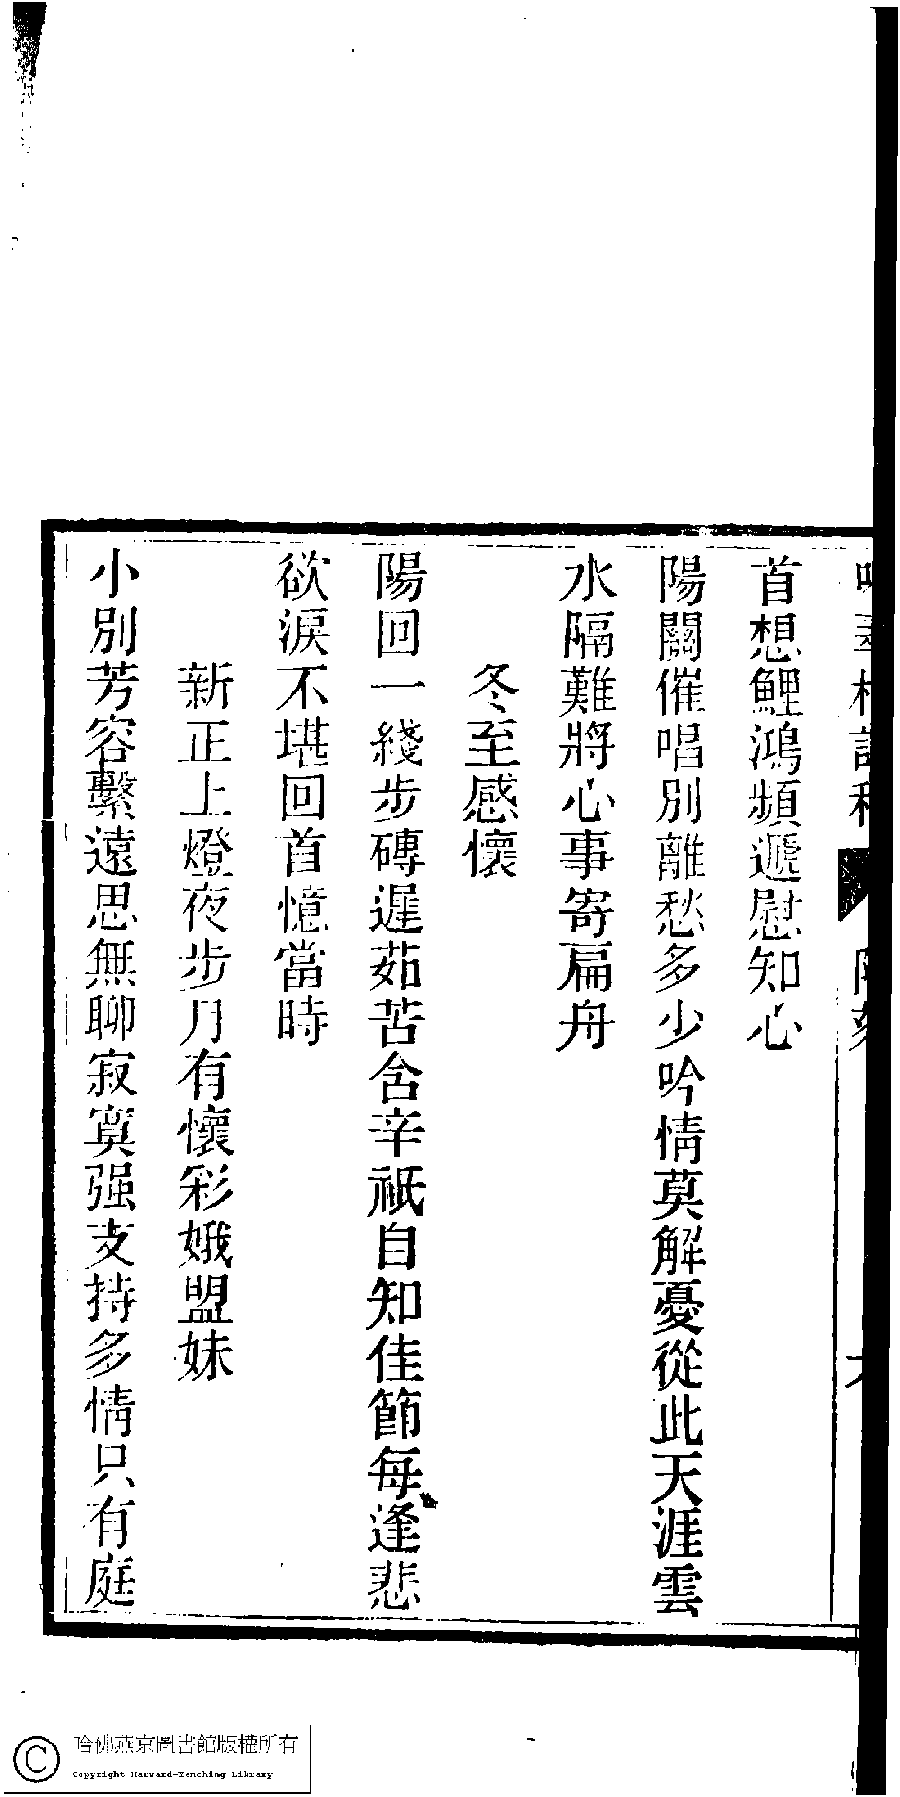 首想鯉鴻頻遞慰知心
陽關催唱別離愁多少吟情莫解憂從此天涯雲
水隔難將心事寄扁舟
冬至感懷
陽回一綫步磚遲茹苦含辛祇自知佳節每逢悲
欲淚不堪回首憶當時
新正上燈夜步月有懷彩娥盟妹
小別芳容繫遠思無聊寂寞强支持多情只有庭
哈佛燕京圖書館版權所有
Copyright Harvard-Yenching Library